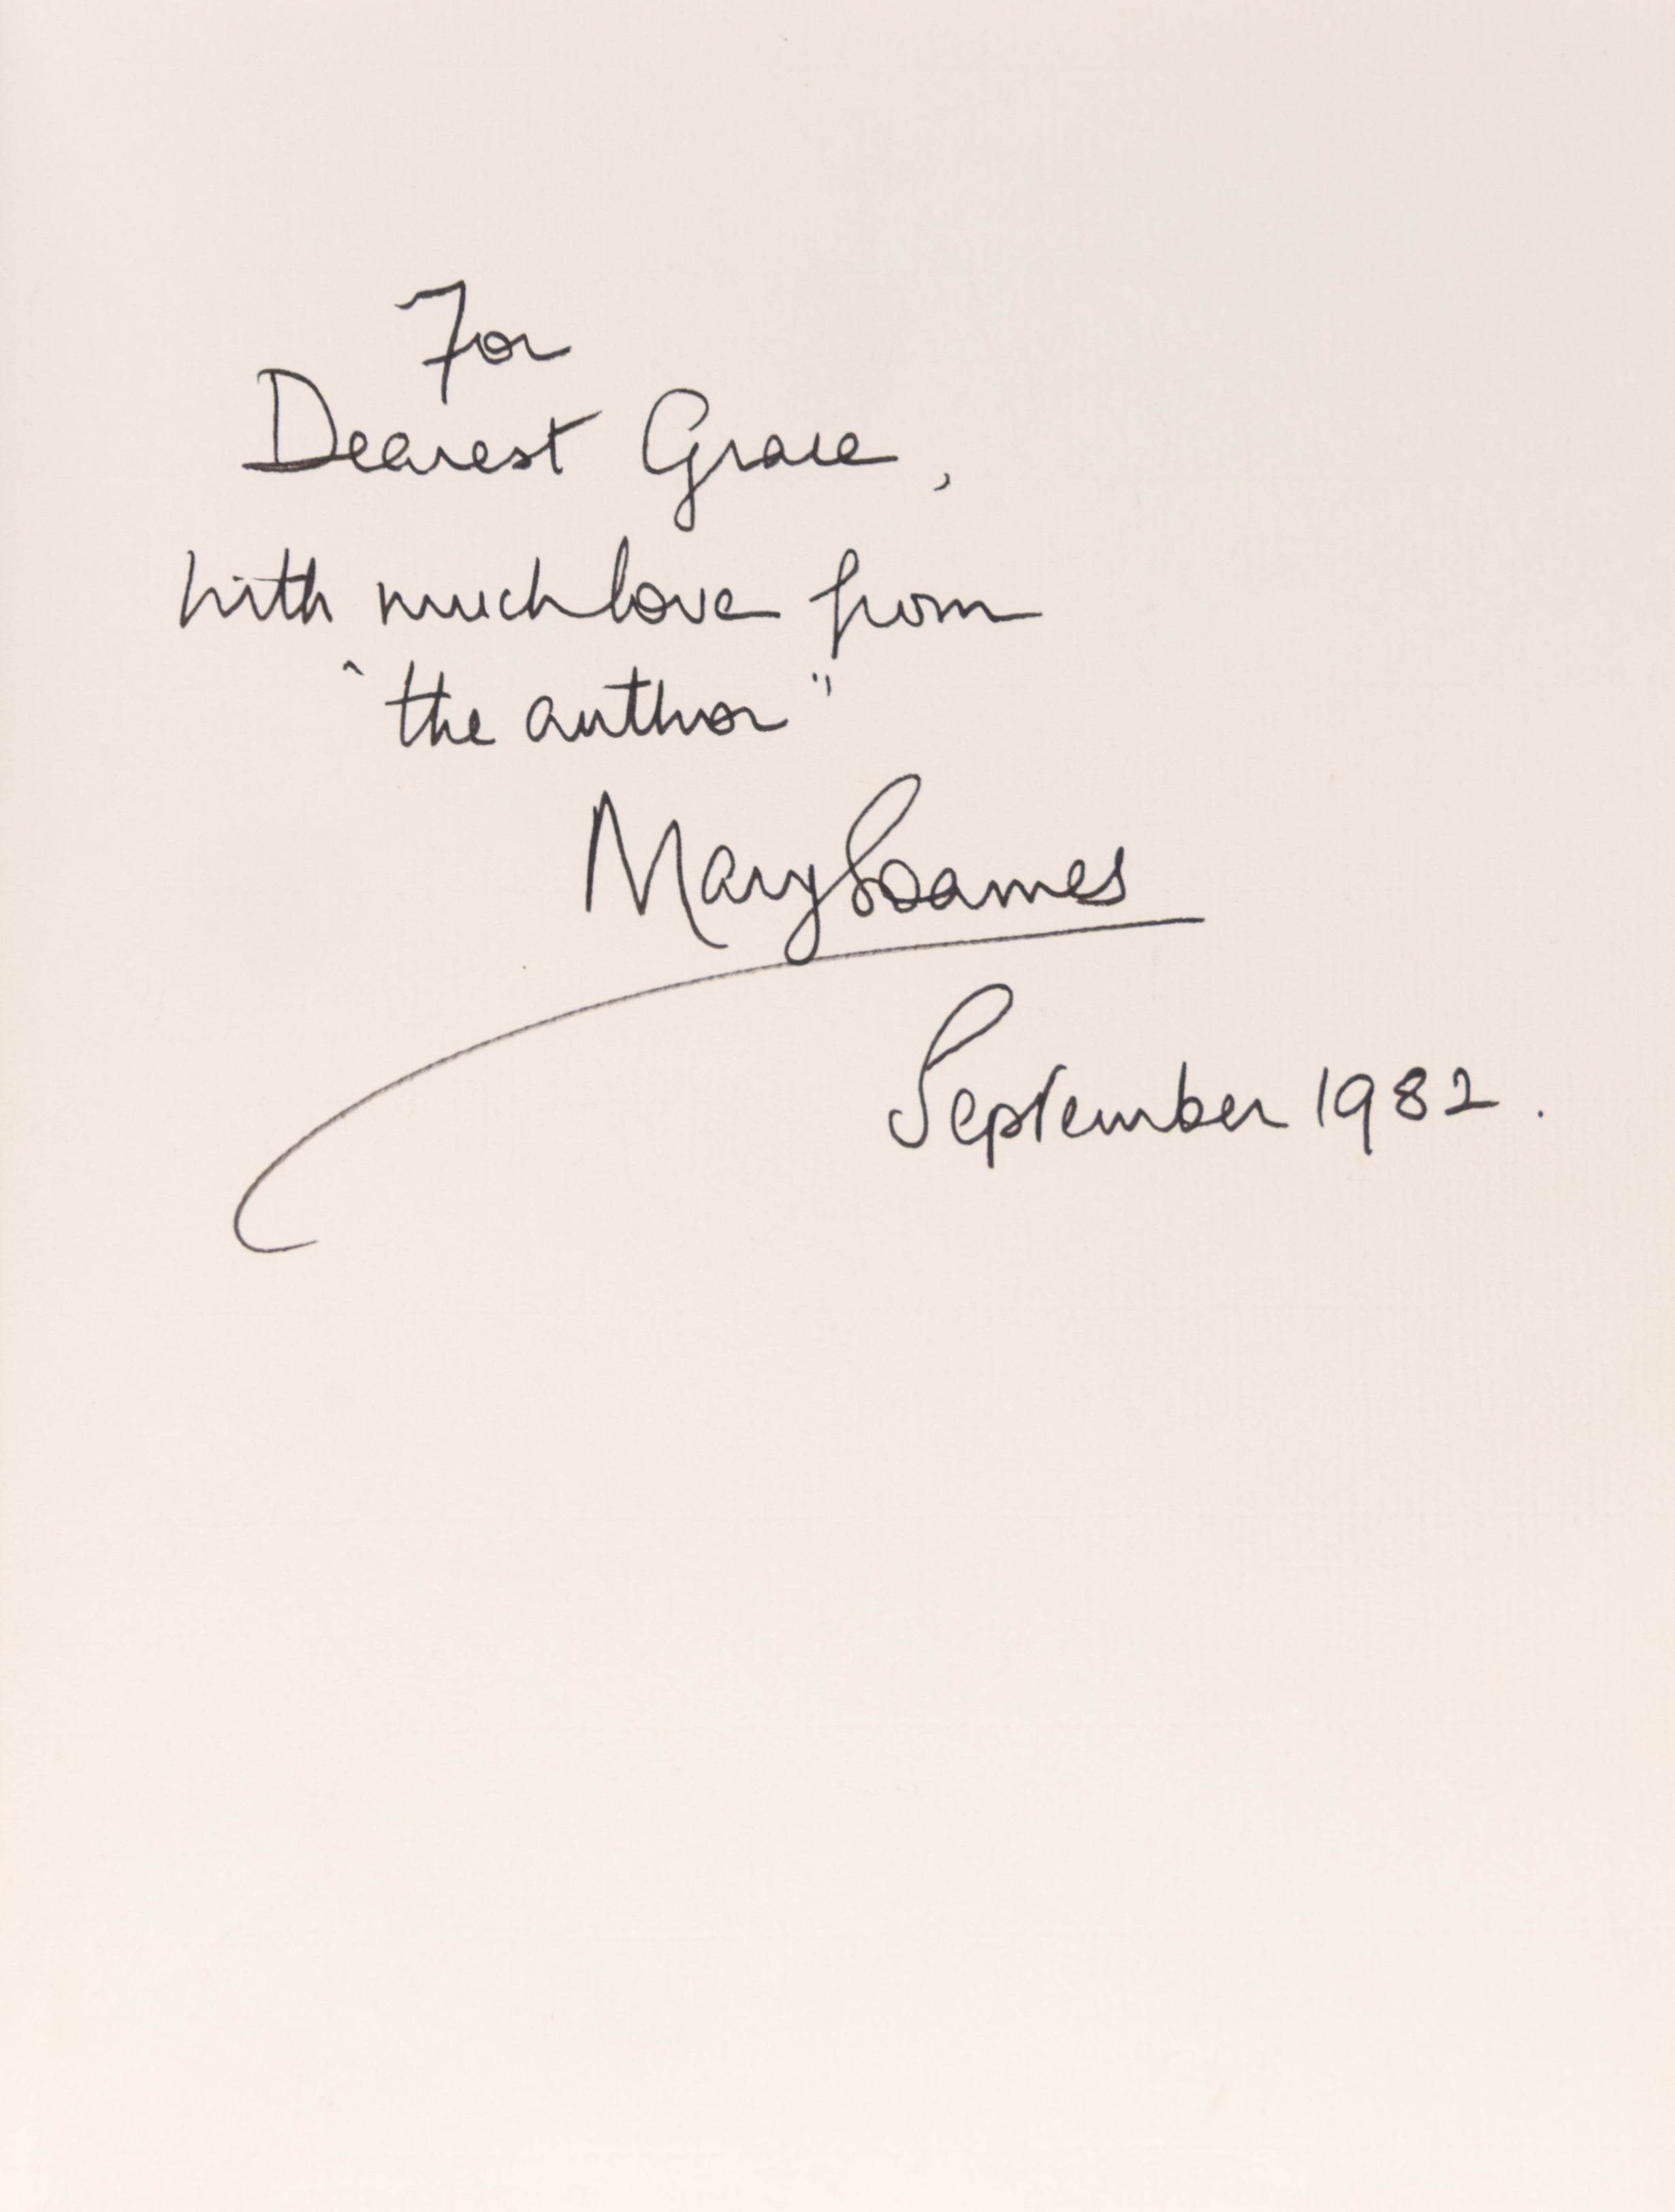 For
Dearest Grace,
with much love from
"the author"
Mary Soames
September 1982.